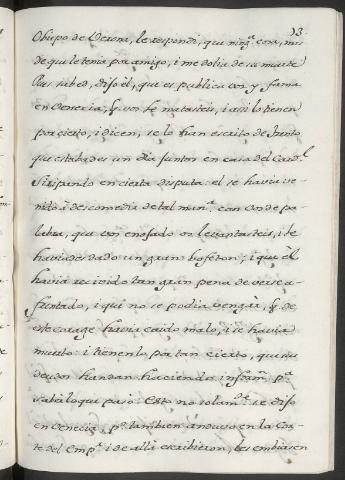 13
Obispo de Verona, le respondi, que ning.ª cosa, mas
de que le tenia por amigo, i me dolia de su muerte
Pues sabed, dijo él, que es publica voz y fama
en Venecia, q. vos le matasteis, i asi lo tienen
por cierto, i dicen, se lo han escrito de Trento
que estabades un dia juntos en casa del Card.l
Seripando en cierta disputa: el se havia ve-
nido à descomedir de tal man.ª con vos de pa-
labra, que vos enojado os levantasteis, i le
haviades dado un gran bofeton; i que él
havia recivido tan gran pena de verse a-
frentado, i que no se podia vengar, q. de
este corage havia caido malo, i se havia
muerto: i tienenlo por tan cierto, que sus
deudos handan haciendo inform.n p.ª
saber lo que pasó. Esto no solam.te se dijo
en Venecia, p.o tambien anduvo en la Cor-
te del Emp.r i de allà escribieron, les embiasen